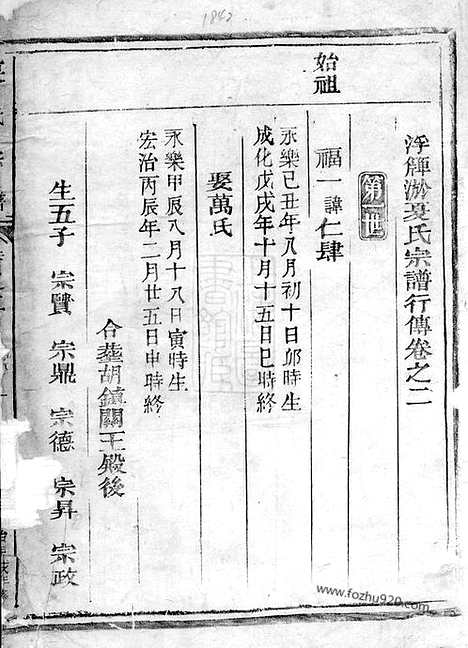 1842
浮䌟㳺夏氏宗譜行傳卷之二
第一世
始祖
福一諱仁肆
永樂己丑年八月初十日卯時生
成化戊戌年十月十五日巳時終
娶萬氏
永樂甲辰八月十八日寅時生
宏治丙辰年二月廿五日申時終
合塟胡鎮關王殿後
生五子 宗賢 宗鼎 宗德 宗昇 宗政
www.fozhu920.com